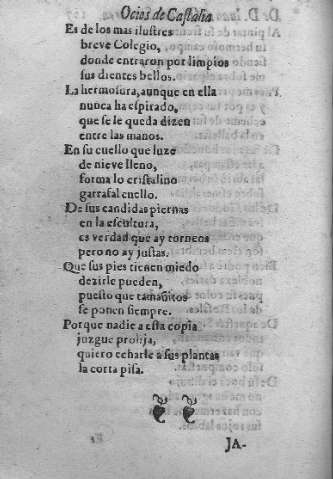 Ocios de Castalia
Es de los mas ilustres
breve Colegio,
donde entraron por limpios
sus dientes bellos.
La hermosura, aunque en ella
nunca ha espirado,
que se le queda dizen
entre las manos.
En su cuello que luze
de nieve lleno,
forma lo cristalino
garrafal cuello.
De sus candidas piernas
en la escultura,
es verdad que ay torneos
pero no ay justas.
Que sus pies tienen miedo
dezirle pueden,
puesto que tamañitos
se ponen siempre.
Porque nadie a esta copia
juzgue prolija,
quiero echarle a sus plantas
la corta pisa.
JA-